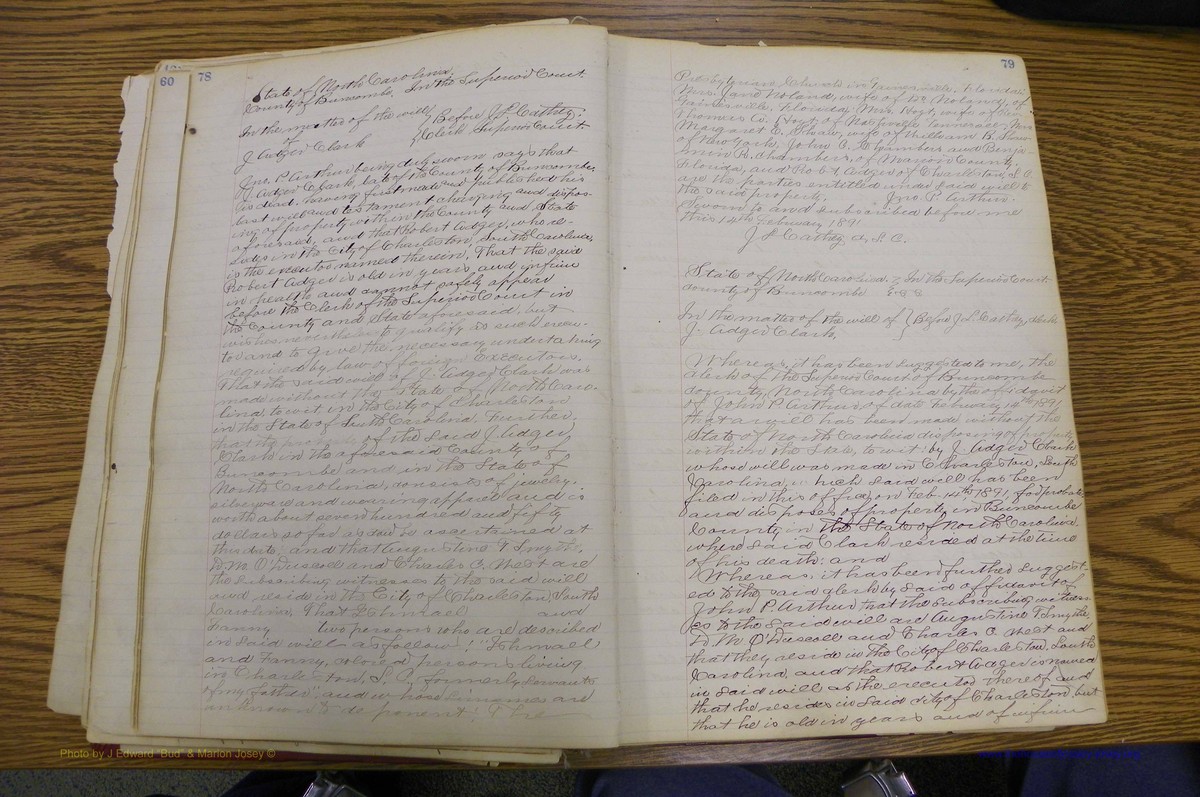 60
78
State of North Carolina.
County of Buncombe. In the Superior Court.
In the matter of the will } Before J. L. Cathey.
of
J Adger Clark } Clerk Superior Court
Jno. P. Arthur being duly sworn says that
J. Adger Clark, late of the County of Buncombe,
is dead, having first made and published his
last will and testament
ing of property within the County and State
aforesaid, and that Robert Adger, who re-
sides in the City of Charleston, South Carolina,
is the executor named therein. That the said
Robert Adger is old in years, and infirm
in health and cannot safely appear
before the Clerk of the Superior Court in
the County and State aforesaid, but
wishes nevertheless to qualify as such execu-
tor and to give the necessary undertaking
required by law of foreign Executors.
That the said will of J. Adger Clark was
made without the State of North Caro-
lina, to wit in the City of Charleston
in the State of South Carolina. Further,
that the property of the said J. Adger
Clark in the aforesaid County of
Buncombe and in the State of
North Carolina, consists of jewelry,
silverware and wearing apparel and is
worth about seven hundred and fifty
dollars so far as can be ascertained at
this date; and that Augustine T. Smythe,
D. M. O'Driscoll and Charles C. West are
the subscribing witnesses to the said will
and reside in the City of Charleston, South
Carolina. That Ishmael and
Fanny two persons who are described
in said will as follows: "Ishmael
and Fanny, colored persons living
in Charleston, S. C. formerly servants
of my father" and whose surnames are
unknown to deponent: The
79
Presbyterian Church in Gainesville, Florida,
Mrs. Jane Noland, wife of Noland, of
Gainesville, Florida, Mrs. Hoyt, wife of Rev.
Thomas A. Hoyt, of Nashville, Tennessee, Mrs
Margaret E. Shaw, wife of William B. Shaw
of New York, John C. Chambers and Benja-
min R. Chambers, of Marion County,
Florida, and Robt. Adger of Charleston, S. C.
are the parties entitled under said will to
the said property. Jno. P. Arthur.
Sworn to and subscribed before me
this 14th February 1891
J L Cathey C. S. C.
State of North Carolina } In the Superior Court.
County of Buncombe
In the matter of the will of } Before J. L. Cathey, clerk
J. Adger Clark,
Whereas, it has been suggested to me, the
clerk of the Superior Court of Buncombe
County, North Carolina by the affidavit
of John P. Arthur, of date February 14th 1891
that a will has been made without the
State of North Carolina disposing of property
within the State, to wit: by J. Adger Clark
whose will was made in Charleston, South
Carolina, which said will has been
filed in this office, on Feb. 14th 1891, for probate
and disposes of property in Buncombe
County in the State of North Carolina,
where said Clark resided at the time
of his death; and
Whereas, it has been further suggest-
ed to the said clerk by said affidavit of
John P. Arthur that the subscribing witness-
es to the said will are Augustine T. Smythe
D. M. O'Driscoll and Charles C. West and
that they reside in the City of Charleston, South
Carolina, and that Robert Adger is named
in said will as the executor thereof and
that he resides in said city of Charleston but
that he is old in years and of infirm
Photo by J Edward "Bud" & Marion Josey ©